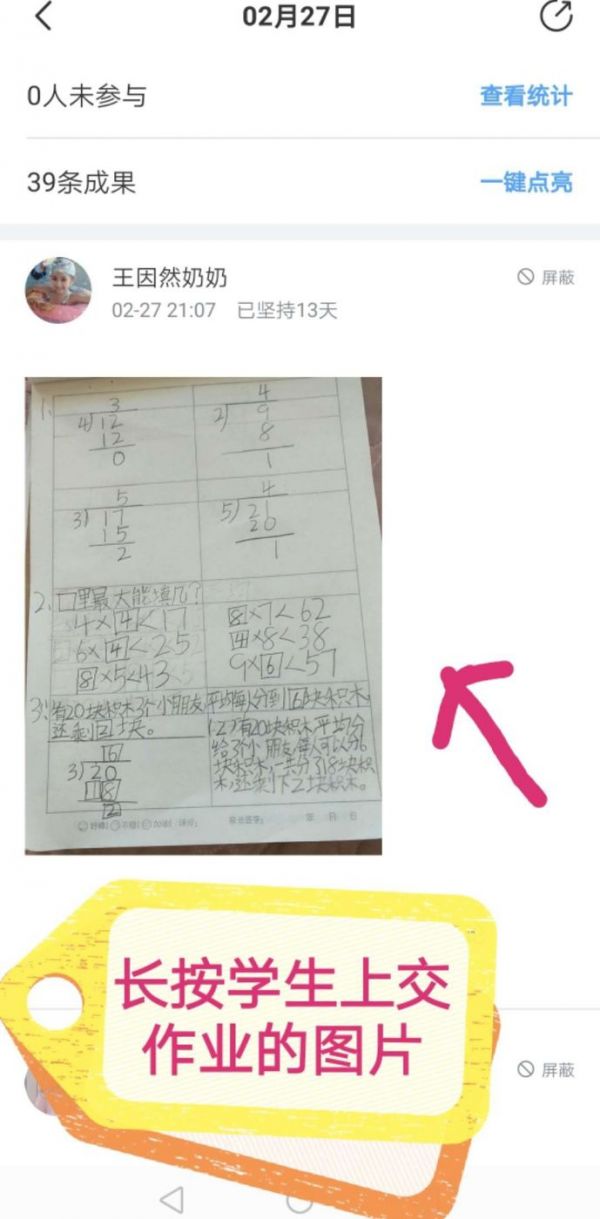 02月27日
0人未参与 查看统计
39条成果 一键点亮
王因然奶奶 屏蔽
02-27 21:07 已坚持13天
1、 3 4
4) 12 2) 9
12 8
0 1
5 4
3) 17 5) 21
15 20
2 1
2、口里最大能填几?
4×4<17 8×7<62
6×4<25 4×8<38
8×5<43 9×6<57
3、有20块积木3个小朋友,平均每人分到6块积木,
还剩2块。
(2)有20块积木平均分
给3个小朋友,每人可以分6
块积木,一共分了18块积
木,还剩下2块积木。
6
3) 20
18
2
年 月 日
长按学生上交
作业的图片
屏蔽